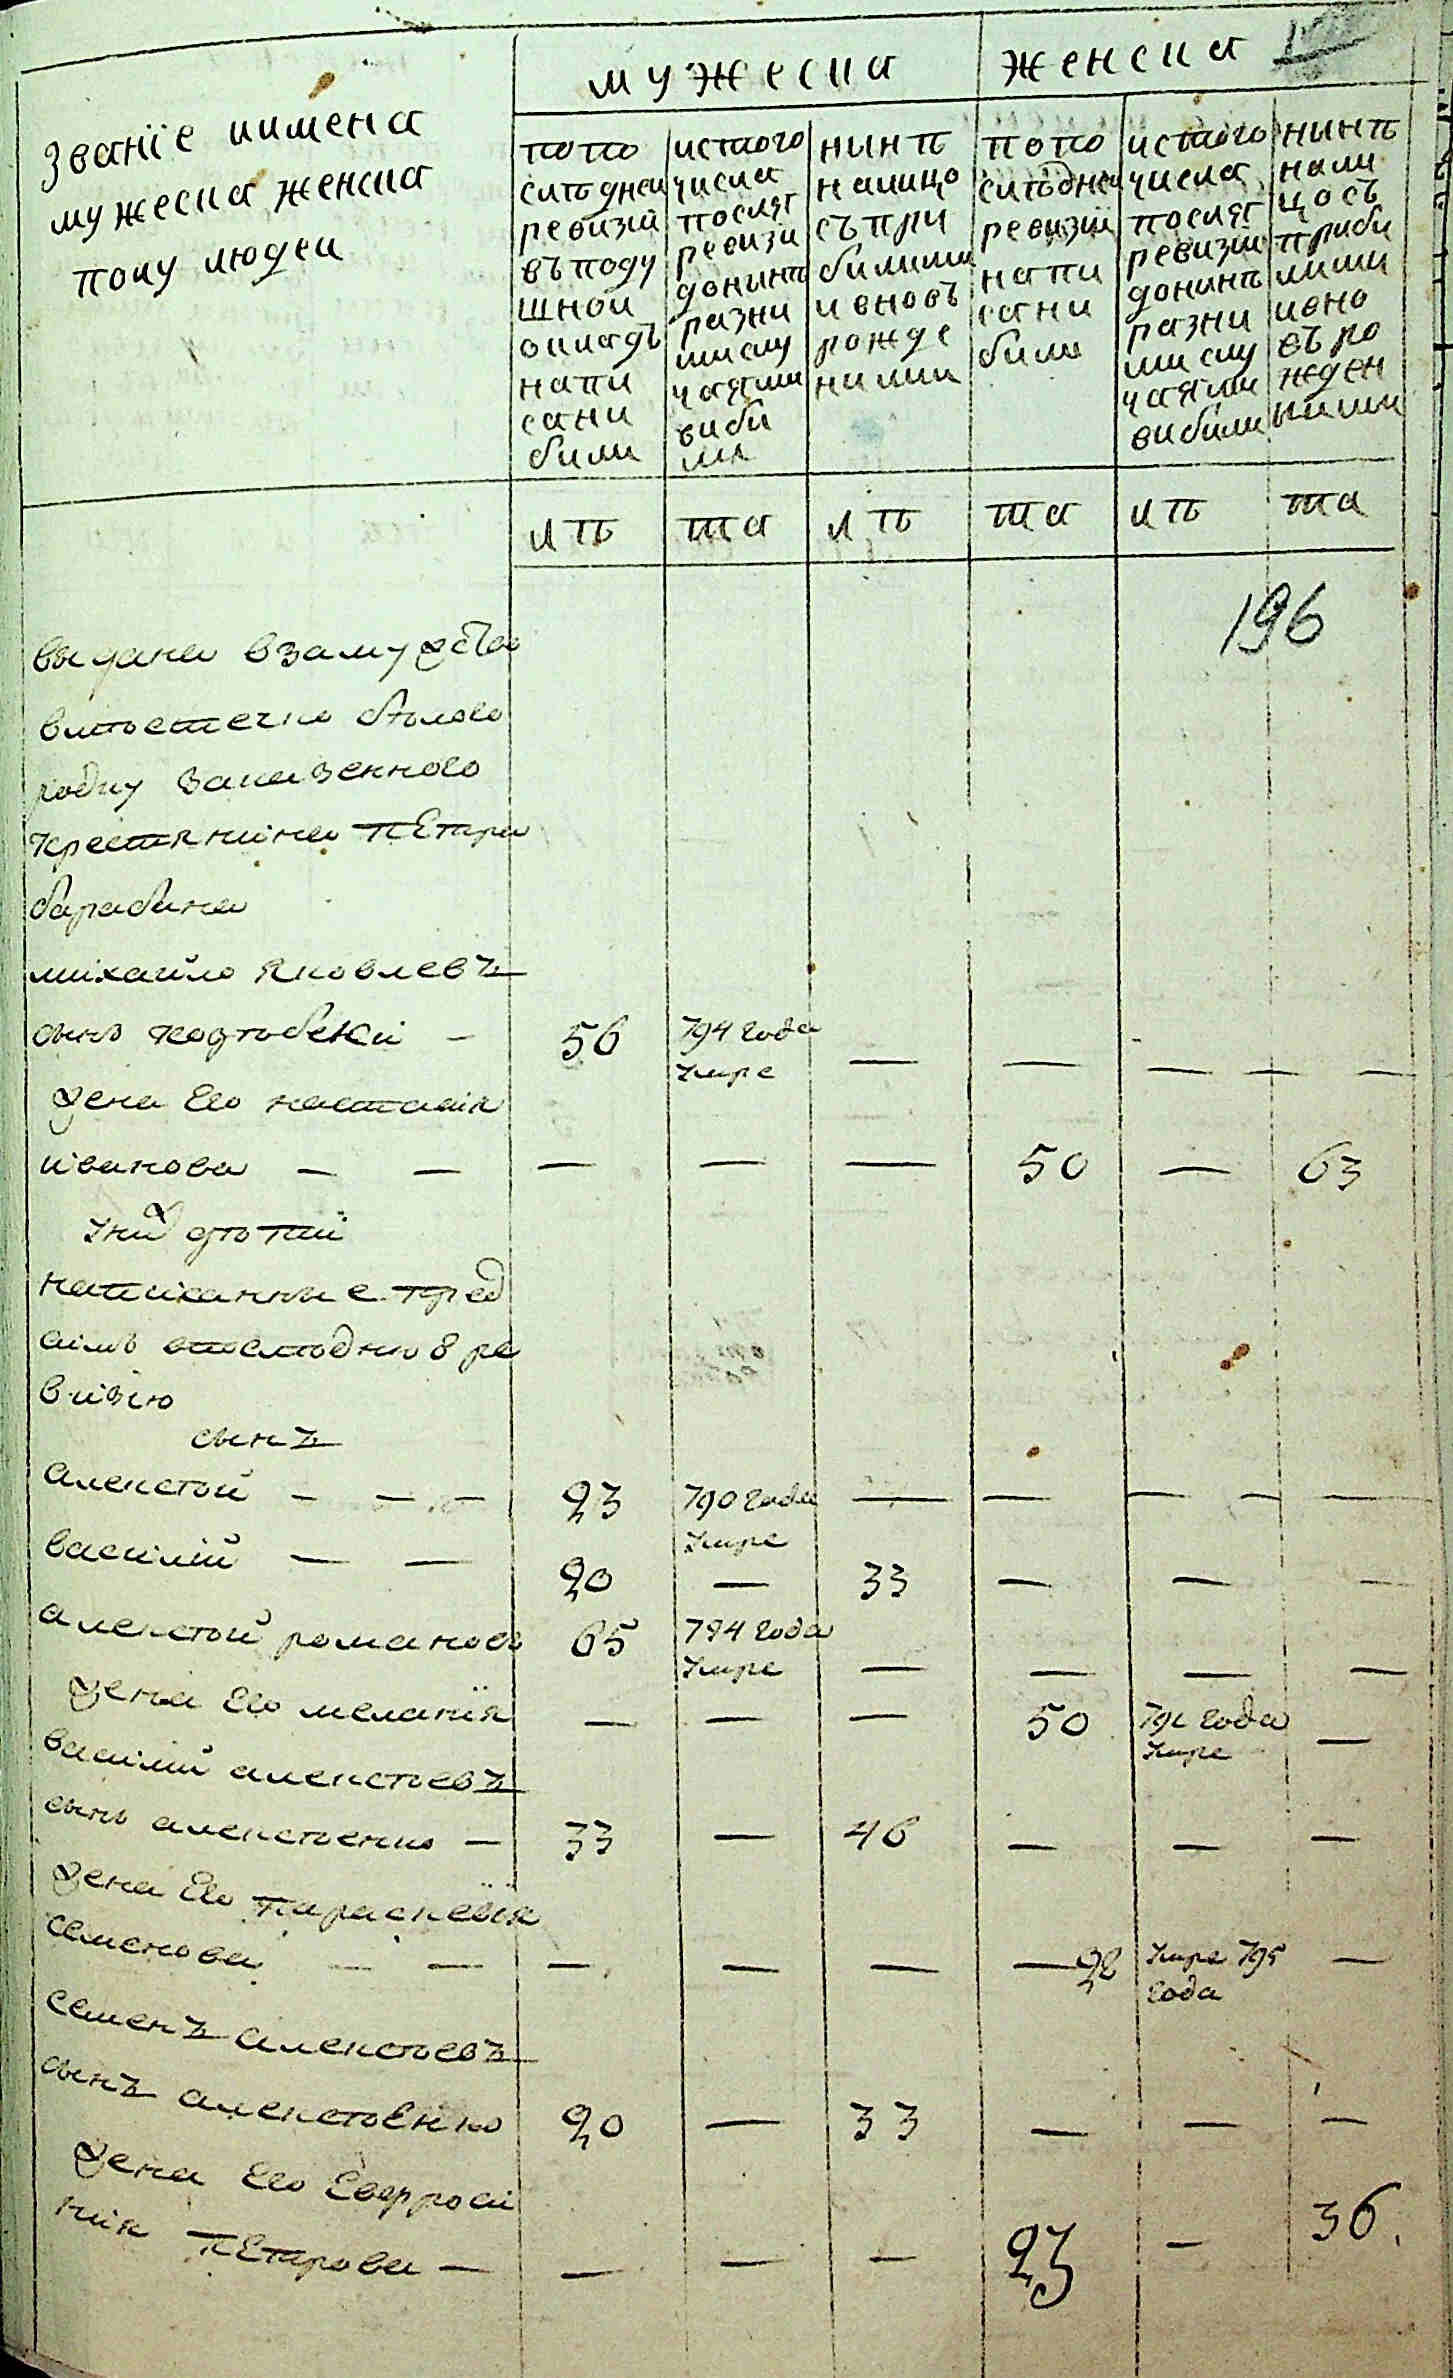 мужеска
женска
званїе иимена
мужеска женска
полу людеи
попо
слѣднеи
ревизїи
въ поду
шнои
окладъ
напи
сани
били
истого
числа
послѣ
ревизи
донынѣ
разни
ми слу
чаями
виби
ли
нынѣ
налицо
съ при
билими
и вновъ
рожде
ними
попо
слѣднеи
ревизїи
напи
сани
били
истого
числа
послѣ
ревизїи
донынѣ
разни
ми слу
чаями
вибили
нынѣ
нали
цо съ
приби
лими
ивно
въ ро
жден
ними
лѣ
та
лѣ
та
лѣ
та
196
выдана взамужства
кодну заказенного
крестянина пЕтра
барабана
михайло яковлевъ
сынъ коздобскї — 56 794 года умре — — — — —
жена Его наталїя
їванова — — — — — 50 — 63
уних дѣтїй
написанные пред
сїмъ впослѣднюю ре
вїзїю
сынъ
алексѣй — — — 23 790 года умре — — — — —
василїй — — 20 — 33 — — —
алексѣй романовъ 65 794 года умре — — — —
жена Его меланїя — — — 50 791 года умре —
василїй алексѣевъ
сынъ алексѣенко — 33 — 46 — — —
жена Его параскевїя
семенова — — — — — — 28 умре 795 года —
семенъ алексѣевъ
сынъ алексѣЕнко 20 — 33 — — —
жена Его Евфросї
нїя пЕтрова — — — — 23 — 36.